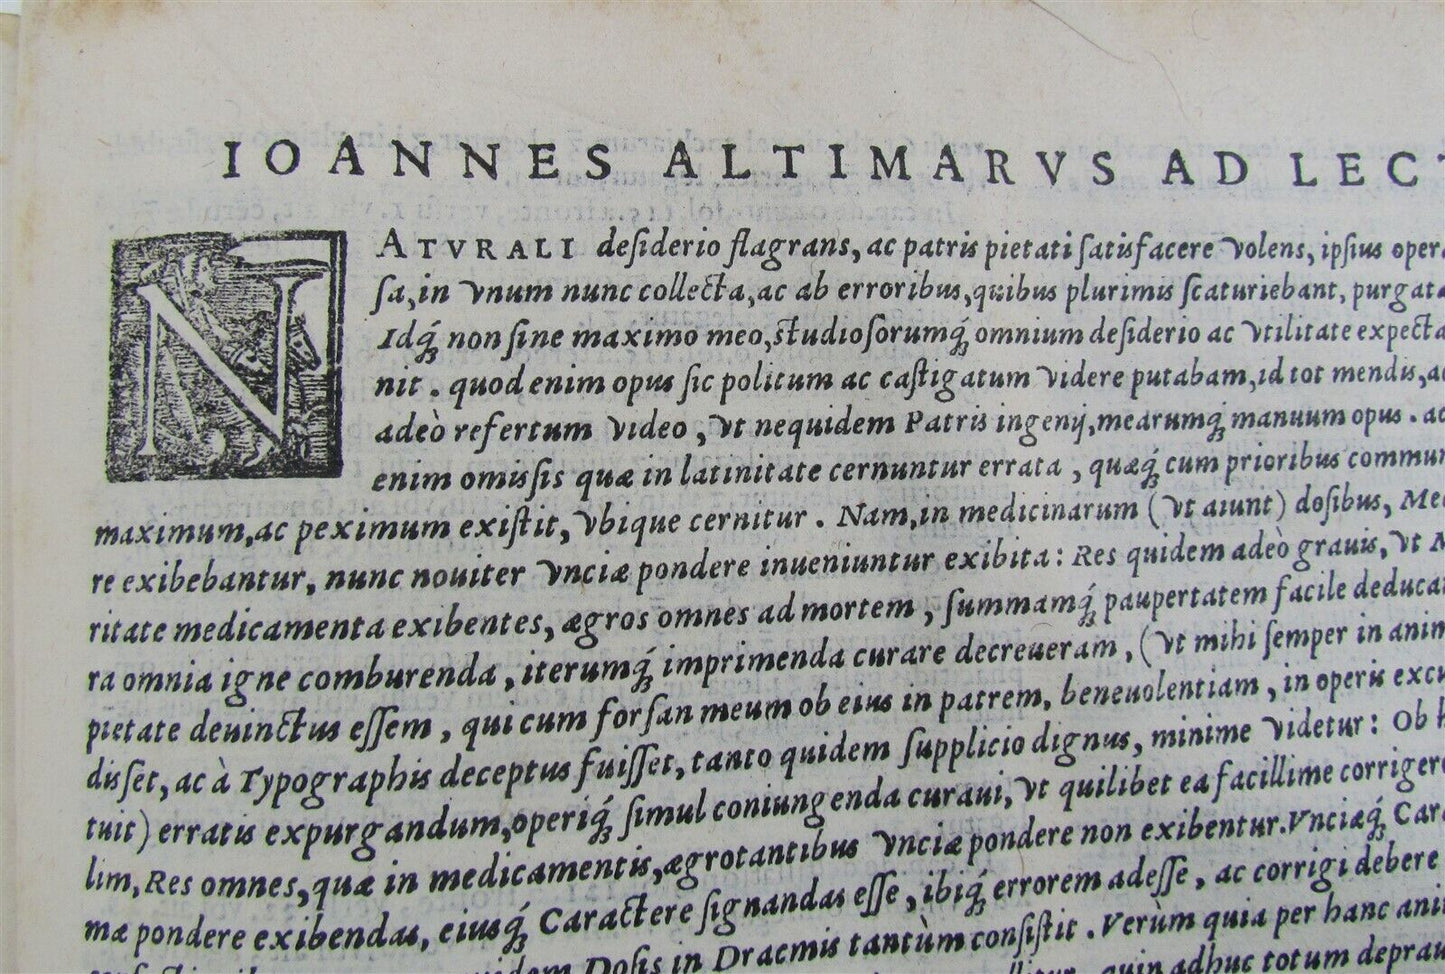 IOANNES ALTIMARVS AD LECT
NATVRALI deſiderio flagrans, ac patris pietati ſatisfacere volens, ipſius oper
ſa, in vnum nunc collecta, ac ab erroribus, quibus plurimis ſcaturiebant, purgata
Idq́; non ſine maximo meo, ſtudioſorumq́; omnium deſiderio ac vtilitate expecta
nit. quod enim opus ſic politum ac caſtigatum videre putabam, id tot mendis, ac
adeò refertum video, vt nequidem Patris ingenij, mearumq́; manuum opus. ac
enim omiſsis quæ in latinitate cernuntur errata, quæq́; cum prioribus commun
maximum, ac peximum exiſtit, vbique cernitur. Nam, in medicinarum (vt aiunt) doſibus, Me
re exibebantur, nunc nouiter vnciæ pondere inueniuntur exibita: Res quidem adeò grauis, vt M
ritate medicamenta exibentes, ægros omnes ad mortem, ſummamq́; paupertatem facile deduca
ra omnia igne comburenda, iterumq́; imprimenda curare decreueram, (vt mihi ſemper in anim
pietate deuinctus eſſem, qui cum forſan meum ob eius in patrem, beneuolentiam, in operis excu
diſſet, ac à Typographis deceptus fuiſſet, tanto quidem ſupplicio dignus, minime videtur: Ob h
tuit) erratis expurgandum, operiq́; ſimul coniungenda curaui, vt quilibet ea facillime corriger
lim, Res omnes, quæ in medicamentis, ægrotantibus vnciæ pondere non exibentur. Vnciæq́; Cara
mæ pondere exibendas, eiusq́; Caractere ſignandas eſſe, ibiq́; errorem adeſſe, ac corrigi debere
quidem Doſis in Dracmis tantùm conſiſtit. Verùm quia per hanc ani
quin adhuc totum deprau